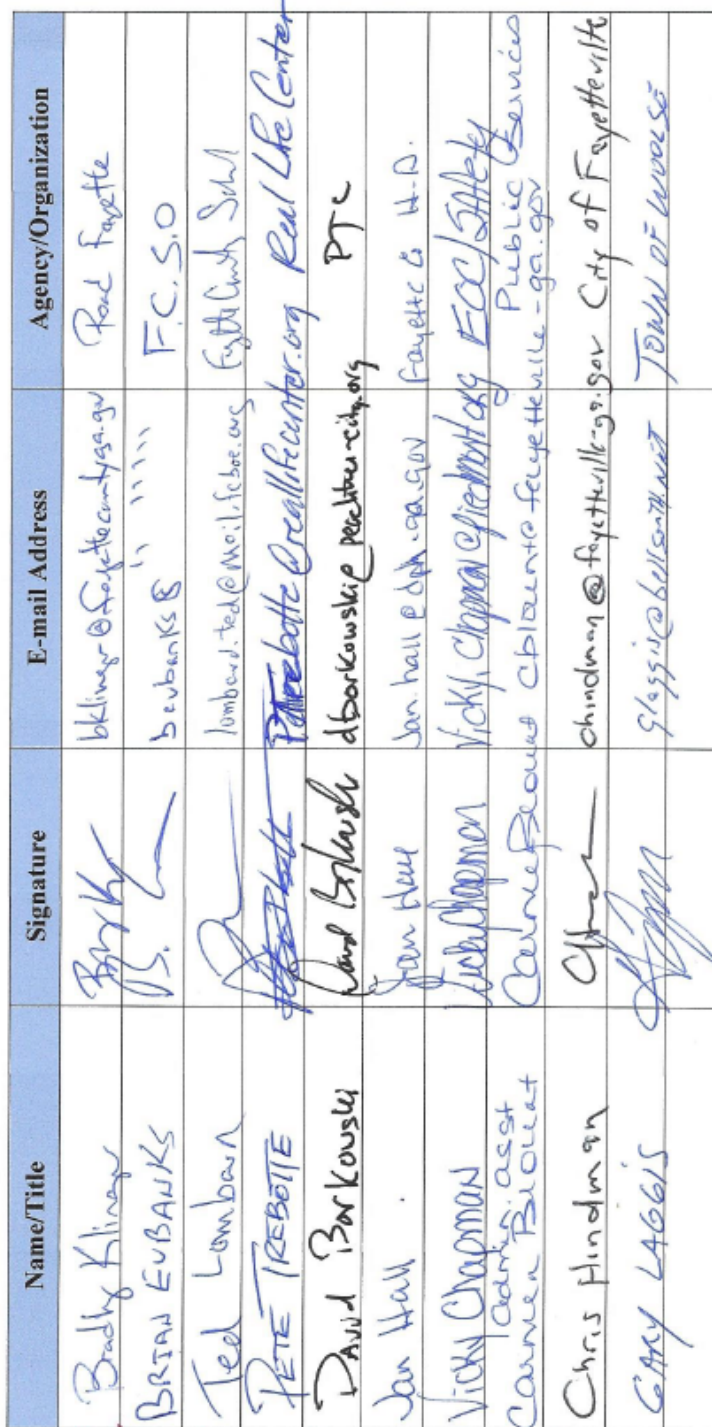 Name/Title Signature E-mail Address Agency/Organization
Bradley Klinger bklinger@fayettecountyga.gov Road Fayette
BRIAN EUBANKS beubanks@ " " " " " F.C.S.O
Ted Lombard lombard.ted@mail.fcboe.org
PETE TREBOTTE Ptrebotte@reallifecenter.org Real Life Center
DAVID Borkowski David Borkowski dborkowski@peachtree-city.org PTC
Jan Hall Jan Hall Jan.hall@dph.ga.gov Fayette Co H.D.
Vicky Chapman Vicky Chapman Vicky.Chapman@piedmont.org EOC/Safety
admin. asst Public Services
Carmen Blount Carmen Blount cblount@fayetteville-ga.gov
Chris Hindman chindman@fayetteville-ga.gov City of Fayetteville
GARY LAGGIS glaggis@bellsouth.net TOWN OF WOOLSEY